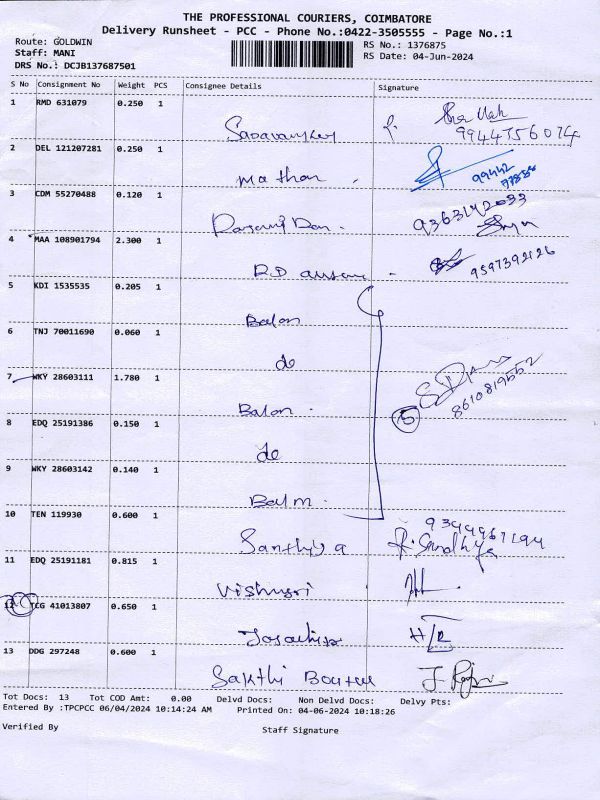 THE PROFESSIONAL COURIERS, COIMBATORE
Delivery Runsheet - PCC - Phone No.:0422-3505555 - Page No.:1
Route: GOLDWIN
RS No.: 1376875
Staff: MANI
RS Date: 04-Jun-2024
DRS No.: DCJB137687501
S No Consignment No Weight PCS Consignee Details Signature
1 RMD 631079 0.250 1
9944756074
2 DEL 121207281 0.250 1
Mathan
99442
3 CDM 55270488 0.120 1
9363142033
4 MAA 108901794 2.300 1
9597392126
5 KDI 1535535 0.205 1
Balon
6 TNJ 70011690 0.060 1
do
7 WKY 28603111 1.780 1
Balon
5
8610819552
8 EDQ 25191386 0.150 1
do
9 WKY 28603142 0.140 1
10 TEN 119930 0.600 1
Santhiya
R. Sandhya
11 EDQ 25191181 0.815 1
Vishnusri
12 TCG 41013807 0.650 1
13 DDG 297248 0.600 1
Sakthi
Tot Docs: 13 Tot COD Amt: 0.00 Delvd Docs: Non Delvd Docs: Delvy Pts:
Entered By :TPCPCC 06/04/2024 10:14:24 AM Printed On: 04-06-2024 10:18:26
Verified By Staff Signature